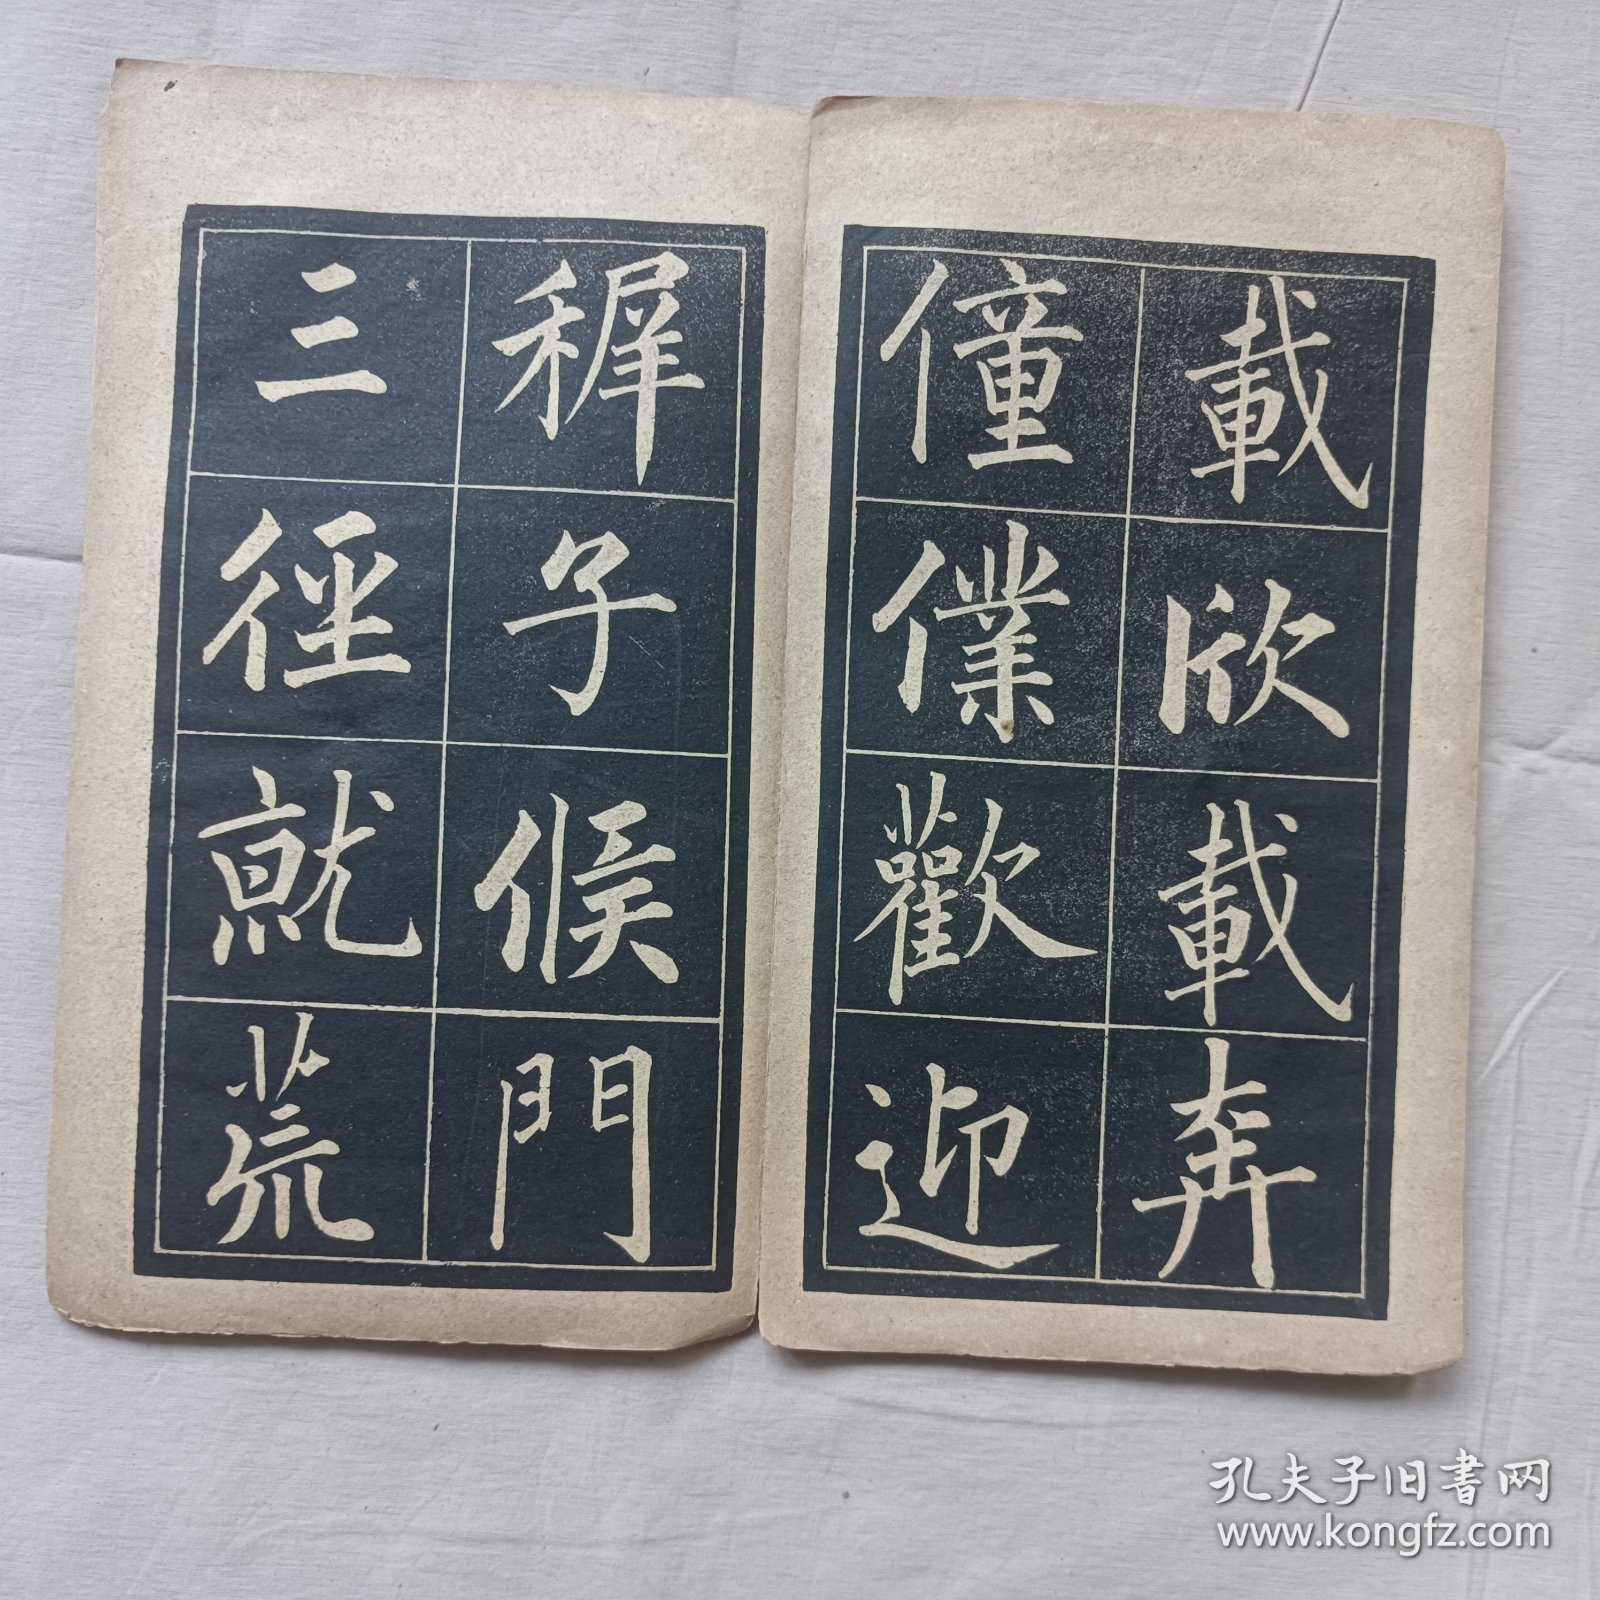 載欣載奔
僮僕歡迎
稺子候門
三徑就荒
孔夫子旧書网
www.kongfz.com